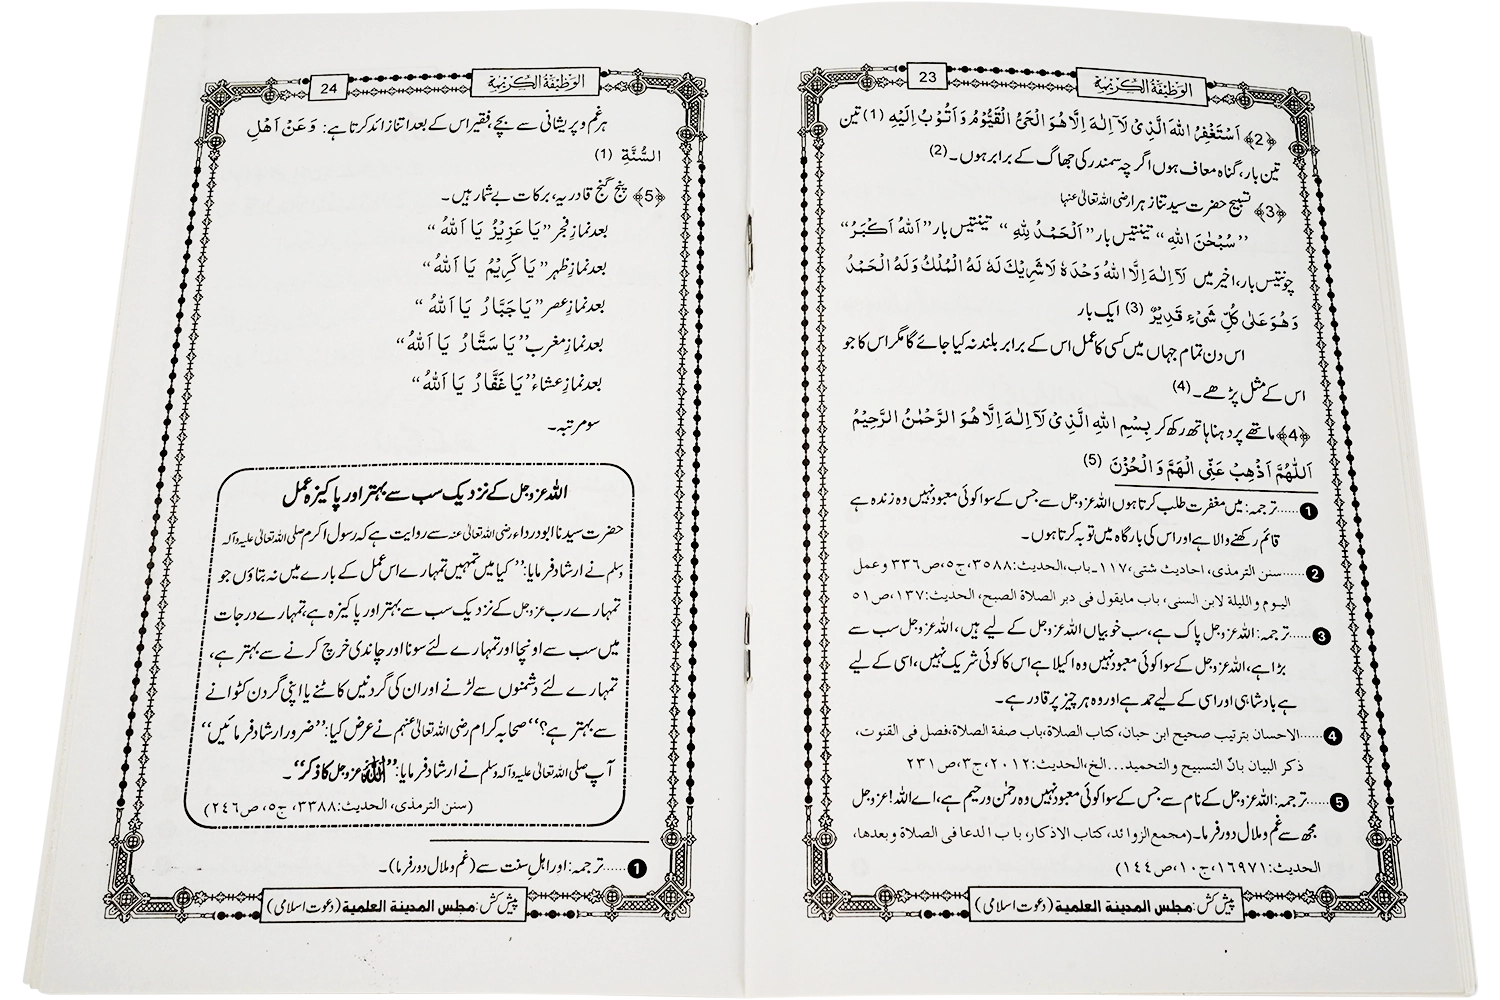 23
الوظیفۃ الکریمۃ
﴿2﴾ اَسْتَغْفِرُ اللہَ الَّذِیْ لَآ اِلٰہَ اِلَّا ھُوَ الْحَیُّ الْقَیُّوْمُ وَاَتُوْبُ اِلَیْہِ (1) تین
تین بار، گناہ معاف ہوں اگرچہ سمندر کی جھاگ کے برابر ہوں۔ (2)
﴿3﴾ تسبیح حضرت سیدتنا زہرا رضی اللہ تعالیٰ عنہا
”سُبْحٰنَ اللہِ“ تینتیس بار ”اَلْحَمْدُ لِلّٰہِ“ تینتیس بار ”اَللہُ اَکْبَرُ“
چونتیس بار، اخیر میں لَآ اِلٰہَ اِلَّا اللہُ وَحْدَہٗ لَا شَرِیْکَ لَہٗ لَہُ الْمُلْکُ وَلَہُ الْحَمْدُ
وَھُوَ عَلٰی کُلِّ شَیْءٍ قَدِیْرٌ (3) ایک بار
اس دن تمام جہاں میں کسی کا عمل اس کے برابر بلند نہ کیا جائے گا مگر اس کا جو
اس کے مثل پڑھے۔ (4)
﴿4﴾ ماتھے پر دہنا ہاتھ رکھ کر بِسْمِ اللہِ الَّذِیْ لَآ اِلٰہَ اِلَّا ھُوَ الرَّحْمٰنُ الرَّحِیْمُ
اَللّٰھُمَّ اَذْھِبْ عَنِّی الْھَمَّ وَالْحُزْنَ (5)
1 ......ترجمہ: میں مغفرت طلب کرتا ہوں اللہ عزوجل سے جس کے سوا کوئی معبود نہیں وہ زندہ ہے
قائم رکھنے والا ہے اور اس کی بارگاہ میں توبہ کرتا ہوں۔
2 ......سنن الترمذی، احادیث شتی، ۱۱۷۔باب، الحدیث: ۳۵۸۸، ج۵، ص ۳۳۶ و عمل
الیوم و اللیلۃ لابن السنی، باب مایقول فی دبر الصلاۃ الصبح، الحدیث: ۱۳۷، ص ۵۱
3 ......ترجمہ: اللہ عزوجل پاک ہے، سب خوبیاں اللہ عزوجل کے لیے ہیں، اللہ عزوجل سب سے
بڑا ہے، اللہ عزوجل کے سوا کوئی معبود نہیں وہ اکیلا ہے اس کا کوئی شریک نہیں، اسی کے لیے
ہے بادشاہی اور اسی کے لیے حمد ہے اور وہ ہر چیز پر قادر ہے۔
4 ......الاحسان بترتیب صحیح ابن حبان، کتاب الصلاۃ، باب صفۃ الصلاۃ، فصل فی القنوت،
ذکر البیان بانّ التسبیح و التحمید...الخ، الحدیث: ۲۰۱۲، ج۳، ص ۲۳۱
5 ......ترجمہ: اللہ عزوجل کے نام سے جس کے سوا کوئی معبود نہیں وہ رحمٰن و رحیم ہے، اے اللہ! عزوجل
مجھ سے غم و ملال دور فرما۔ (مجمع الزوائد، کتاب الاذکار، باب الدعا فی الصلاۃ و بعدھا،
الحدیث: ۱۶۹۷۱، ج۱۰، ص ۱۴۴)
پیش کش: مجلس المدینۃ العلمیۃ (دعوت اسلامی)
24
الوظیفۃ الکریمۃ
ہر غم و پریشانی سے بچے، فقیر اس کے بعد اتنا زائد کرتا ہے: وَعَنْ اَھْلِ
السُّنَّۃِ (1)
﴿5﴾ پنج گنج قادریہ، برکات بے شمار ہیں۔
بعد نمازِ فجر ”یَا عَزِیْزُ یَا اَللہُ“
بعد نمازِ ظہر ”یَا کَرِیْمُ یَا اَللہُ“
بعد نمازِ عصر ”یَا جَبَّارُ یَا اَللہُ“
بعد نمازِ مغرب ”یَا سَتَّارُ یَا اَللہُ“
بعد نمازِ عشاء ”یَا غَفَّارُ یَا اَللہُ“
سو مرتبہ۔
اللہ عزوجل کے نزدیک سب سے بہتر اور پاکیزہ عمل
حضرت سیدنا ابو درداء رضی اللہ تعالیٰ عنہ سے روایت ہے کہ رسول اکرم صلی اللہ تعالیٰ علیہ وآلہ
وسلم نے ارشاد فرمایا: ”کیا میں تمہیں تمہارے اس عمل کے بارے میں نہ بتاؤں جو
تمہارے رب عزوجل کے نزدیک سب سے بہتر اور پاکیزہ ہے، تمہارے درجات
میں سب سے اونچا اور تمہارے لئے سونا اور چاندی خرچ کرنے سے بہتر ہے،
تمہارے لئے دشمنوں سے لڑنے اور ان کی گردنیں کاٹنے یا اپنی گردن کٹوانے
سے بہتر ہے؟“ صحابہ کرام رضی اللہ تعالیٰ عنہم نے عرض کیا: ”ضرور ارشاد فرمائیں“
آپ صلی اللہ تعالیٰ علیہ وآلہ وسلم نے ارشاد فرمایا: ”اللہ عزوجل کا ذکر“۔
(سنن الترمذی، الحدیث: ۳۳۸۸، ج۵، ص ۲۴۶)
1 ......ترجمہ: اور اہلِ سنت سے (غم و ملال دور فرما)۔
پیش کش: مجلس المدینۃ العلمیۃ (دعوت اسلامی)